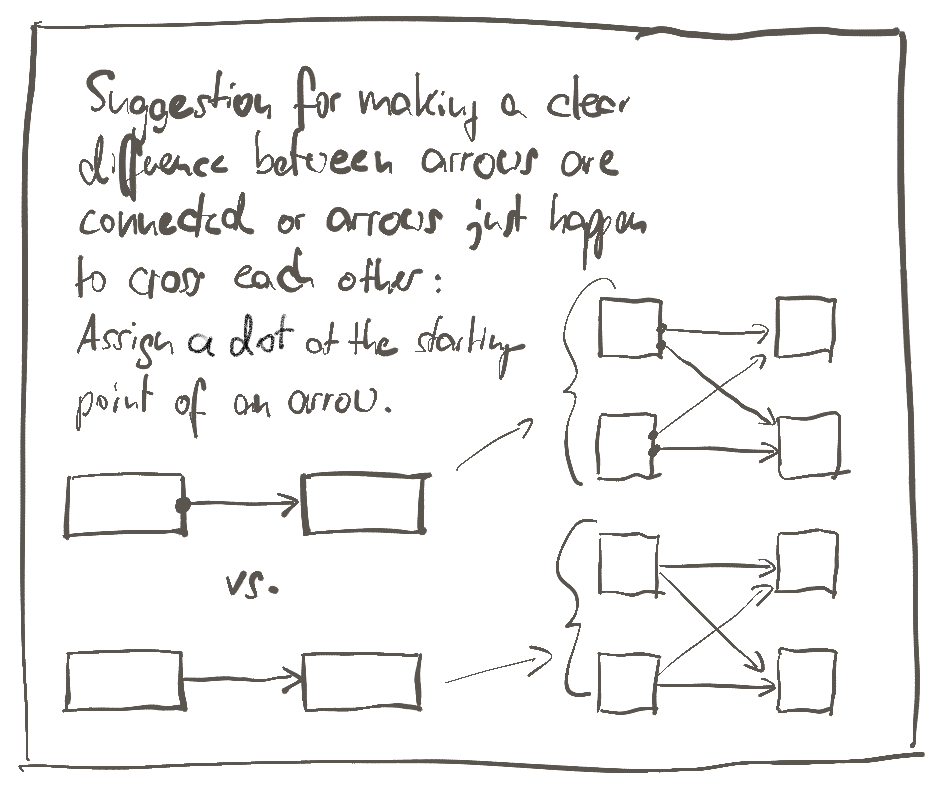 Suggestion for making a clear
difference between arrows are
connected or arrows just happen
to cross each other:
Assign a dot at the starting
point of an arrow.
vs.